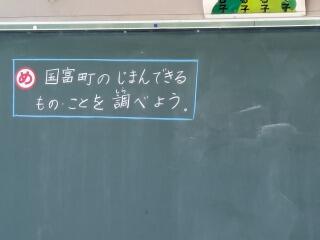 め 国富町のじまんできる
もの・ことを調べよう。